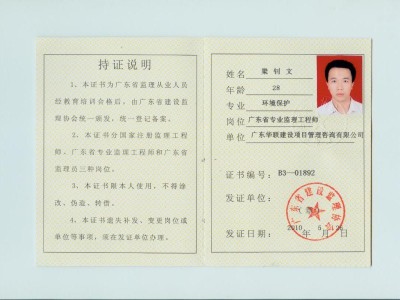 持证说明
1、本证书为广东省监理从业人员
经教育培训合格后，由广东省建设监
理协会统一颁发，统一登记备案。
2、本证书分国家注册监理工程
师、广东省专业监理工程师和广东省
监理员三种岗位。
3、本证书限本人使用，不得涂
改、伪造、转借。
4、本证书遗失补发、变更岗位或
单位等事项，须在发证单位办理。
姓名 梁钊文
年龄 28
专业 环境保护
岗位 广东省专业监理工程师
单位 广东华联建设项目管理咨询有限公司
证书编号：B3—01892
发证单位：
广东省建设监理协会
发证日期：2010 年 5 月 26 日